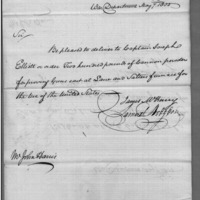 War Department May 1800
Sir
Be pleased to deliver to Captain Joseph
Elliott order Two hundred pounds of Cannon powder
for proving Guns cast at Lane and Salters furnace for
the use of the United States
James McHenry
Samuel Hodgdon
Mr John Harris